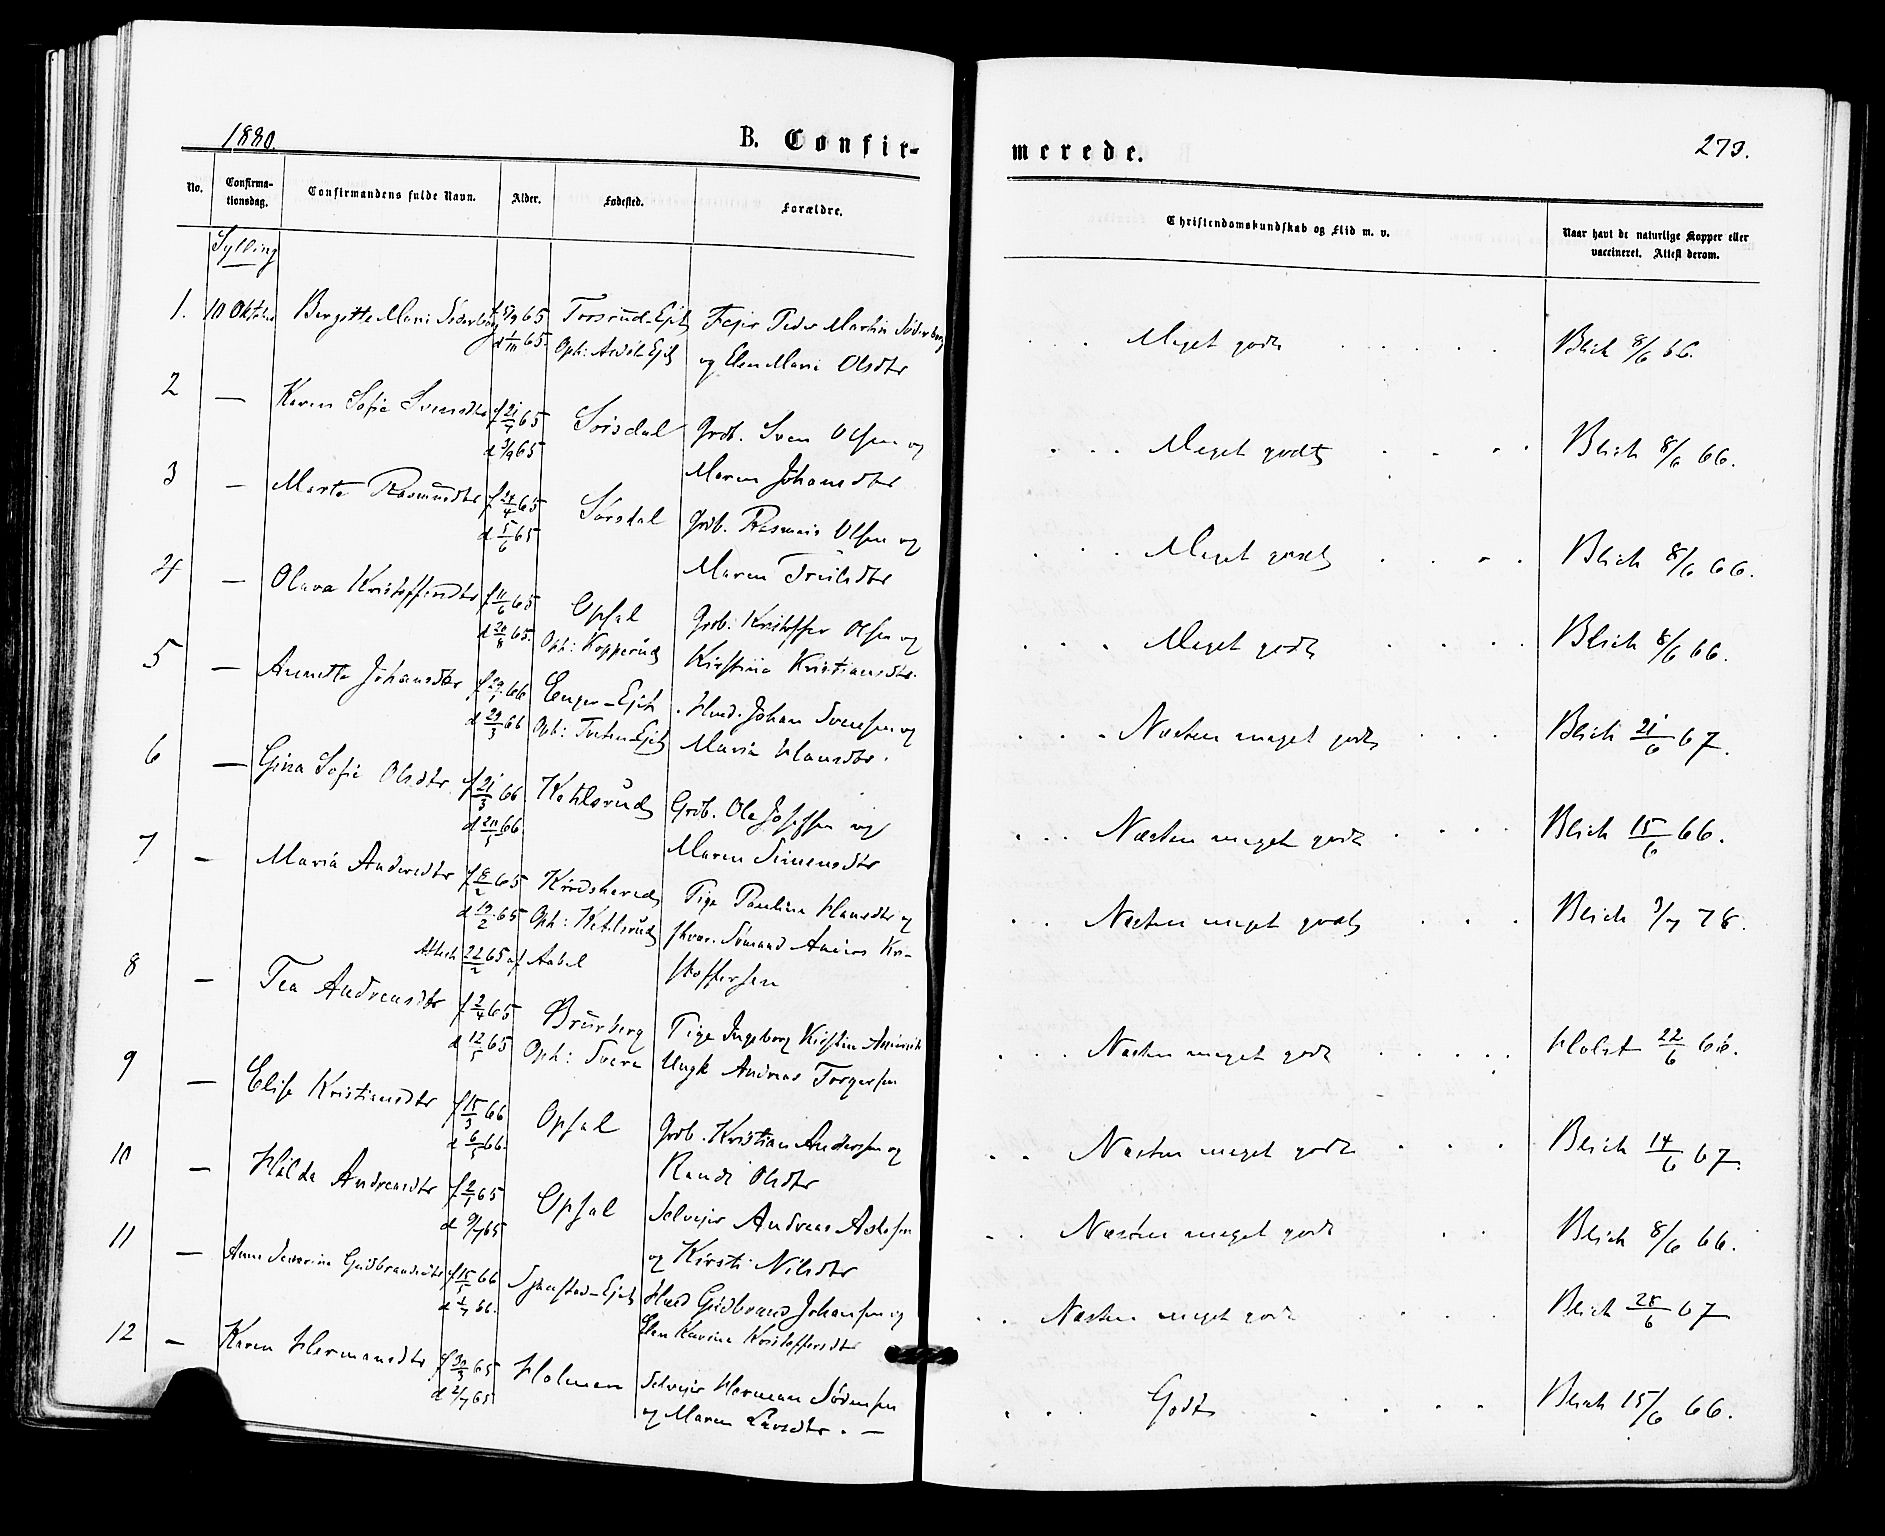 1880.
B. Confir-
merede.
273.
No.
Confirma-
tionsdag.
Confirmandens fulde Navn.
Alder.
Fødested.
Forældre.
Christendomskundskab og Flid m. v.
Naar havt de naturlige Kopper eller
vaccineret. Attest derom.
Sylling
1. 10 Oktober Bergette Mari Søderberg 65 Torsrud-Ejet Peder Martin Søderberg
65. Oph: og Elen Marie Olsdtr
Meget godt Blich 8/6 66.
2 — Karen Sofie Svensdtr f 21/7 65 Sørsdal Grdb. Sven Olsen og
d 3/9 65 Maren Johansdtr
Meget godt Blich 8/6 66.
3 — Marte Rasmusdtr f 24/4 65 Sørsdal Grdb. Rasmus Olsen og
d 5/6 65 Maren Truulsdtr
Meget godt Blich 8/6 66.
4 — Olava Kristoffersdtr f 11/6 65 Opsal Grdb. Kristoffer Olsen og
d 20/8 65. Oph: Kopperud Kirstine Kristiansdtr.
Meget godt Blich 8/6 66.
5 — Annette Johansdtr 66 Enger-Ejet Husd. Johan Svensen og
d 29/3 66 Oph: Tveten-Ejet Maria Hansdtr.
Næsten meget godt Blich 21/6 67.
6 — Gina Sofie Olsdtr. f 21/3 66 Ketlsrud Grdb. Ole Josefsen og
d 20/5 66. Maren Simensdtr
Næsten meget godt Blich 15/6 66.
7 — Maria Andersdtr f 8/2 65 Kirdskerud Pige Pauline Hansdtr og
d 19/2 65 Oph: Ketlsrud Anders Kri-
Attest 22/2 65 af Aabel stoffersen
Næsten meget godt Blich 3/7 78.
8 — Tea Andreasdtr f 2/4 65 Brurberg Pige Ingeborg Kirstine
d 12/5 65 Oph: Svere Ungk Andreas Torgersen
Næsten meget godt Holst 22/6 66.
9 — Elise Kristiansdtr f 15/3 66 Opsal Grdb. Kristian Andersen og
d 6/5 66. Randi Olsdtr
Næsten meget godt Blich 14/6 67.
10 — Hilda Andreasdtr f 2/1 65 Opsal Selvejer Andreas Aslesen
d 9/7 65 og Kirsti Nilsdtr
Næsten meget godt Blich 8/6 66.
11 — Anne Severine Gudbrandsdtr f 15/5 66 Husd Gudbrand Johansen og
d 1/7 66. Elen Karine Kristoffersdtr
Næsten meget godt Blich 28/6 67
12 — Karen Hermansdtr f 30/3 65 Holmen Selvejer Herman Sørensen
d 2/7 65 og Maren Larsdtr. —
Godt Blich 15/6 66.